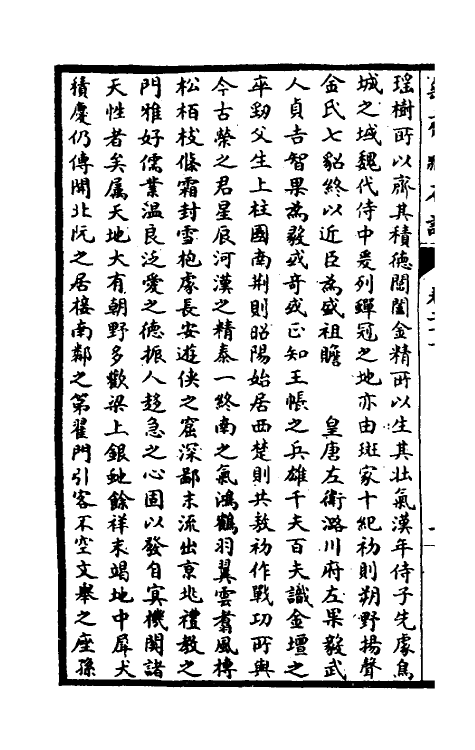 瑶樹所以齊其積德閶闔金精所以生其壯氣漢年侍子先處烏
城之域魏代侍中爰列蟬冠之地亦由班家十紀初則朔野揚聲
金氏七貂終以近臣為盛祖瞻　皇唐左衛潞川府左果毅武
人貞吉智果為毅或奇或正知王帳之兵雄千夫百夫識金壇之
卒勁父生上柱國南荆則昭陽始居西楚則共敖初作戰功所與
今古榮之君星辰河漢之精泰一終南之氣鴻鶴羽翼雲翥風摶
松栢枝條霜封雪抱處長安遊俠之窟深鄙末流出京兆禮教之
門雅好儒業温良泛愛之德振人趍急之心固以發自寘機關諸
天性者矣属天地大有朝野多歡梁上銀虵餘祥末竭地中犀犬
積慶仍傳開北阮之居接南鄰之第翟門引客不空文舉之座孫